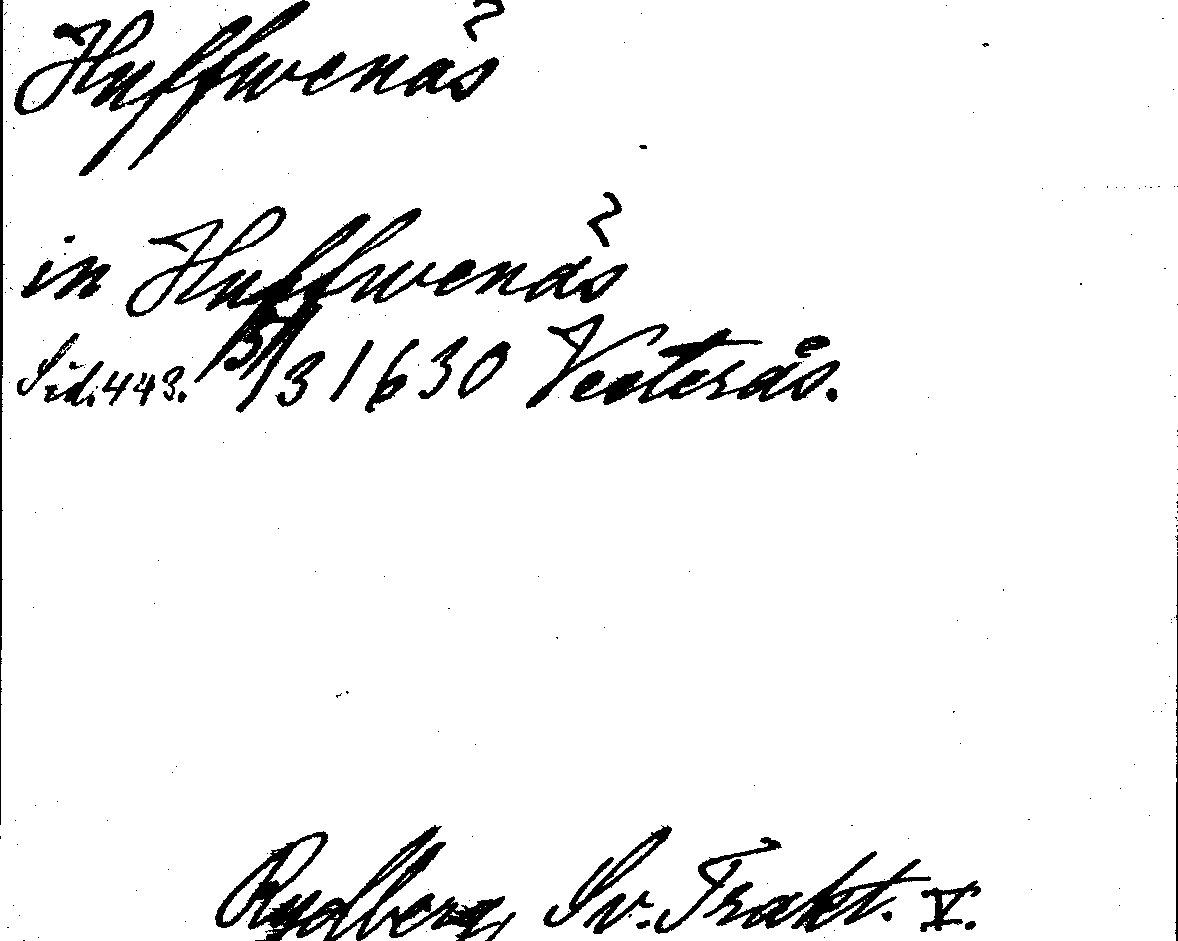 Huffwenås
in Huffwenås
Sid. 443. 15/3 1630 Vesterås.
Rydberg, Sv. Trakt. V.